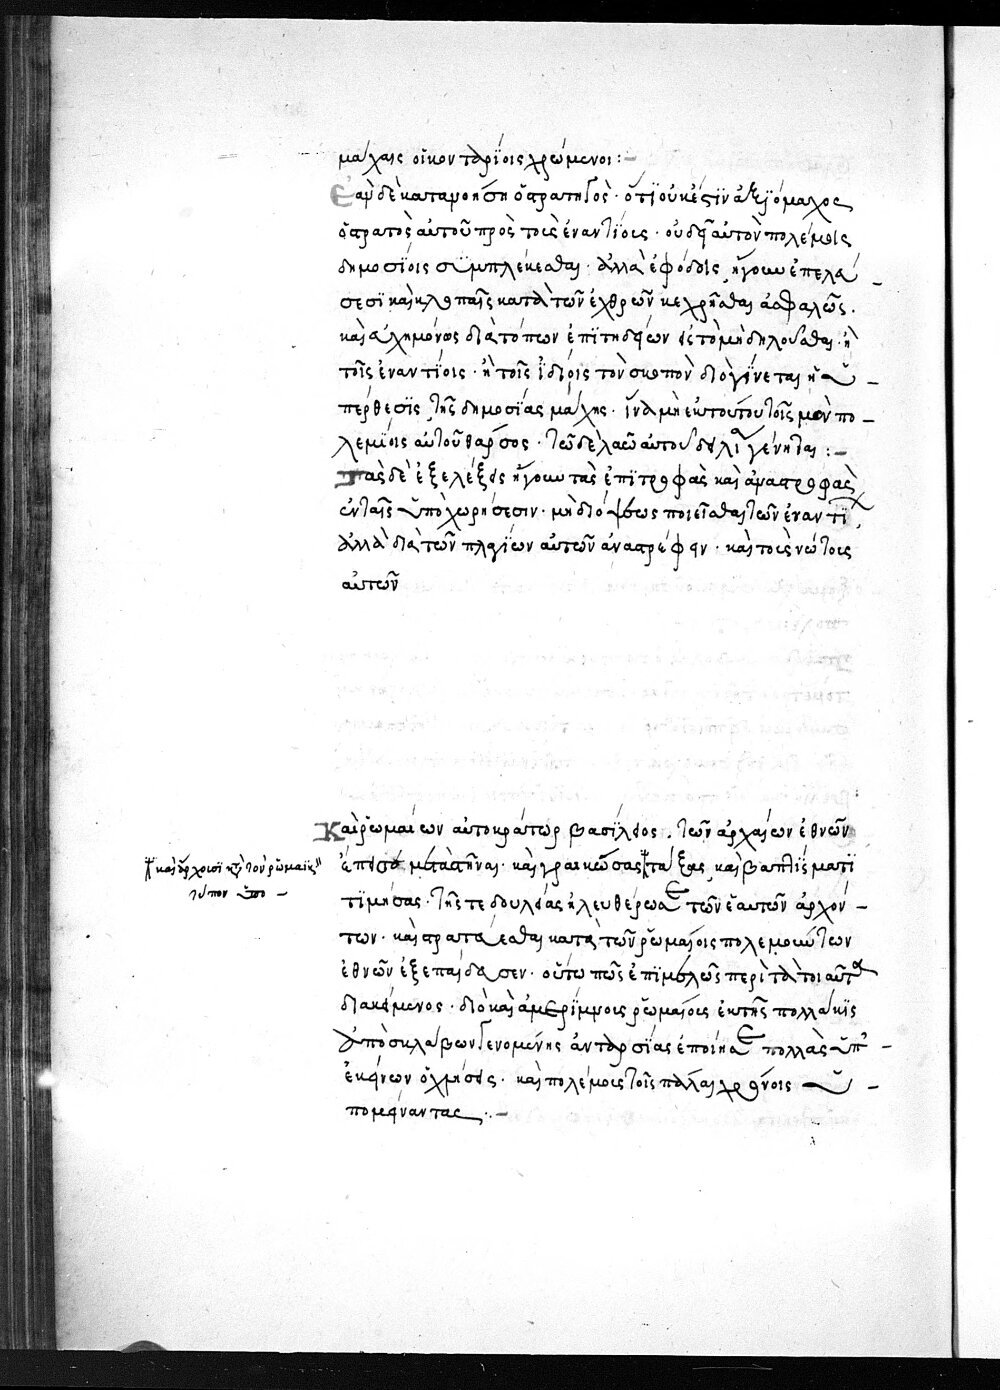 μάχαις οἱ κοντάριοις χρώμενοι :-
Ἐὰν δὲ καταψοήσῃ ὁ στρατηγὸς · ὅτι οὐκ ἔστιν ἀξιόμαχος
ὁ στρατὸς αὐτοῦ πρὸς τοὺς ἐναντίους · οὐ δεῖ αὐτὸν πολέμοις
δημοσίοις συμπλέκεσθαι · ἀλλὰ ἐφόδοις ἤγουν ἐπελά -
σεσι καὶ κλοπαῖς κατὰ τῶν ἐχθρῶν κεχρῆσθαι ἀσφαλῶς .
καὶ εὐσχημόνως διὰ τόπων ἐπιτηδείων εἰς τὸ μὴ δηλοῦσθαι · ἢ
τοῖς ἐναντίοις · ἢ τοῖς ἰδίοις τὸν σκοπὸν δι' ὃ γίνεται ἡ ὑ -
πέρθεσις τῆς δημοσίας μάχης · ἵνα μὴ ἐκ τούτου τοῖς μὲν πο -
λεμίοις αὐτοῦ θάρσος · τῷ δὲ λαῷ αὐτοῦ δειλία γένηται : -
Τὰς δὲ ἐξελέξεις ἤγουν τὰς ἐπιτροφὰς καὶ ἀναστροφὰς
ἐν ταῖς ὑποχωρήσεσιν · μὴ δι' ὄψεως ποιεῖσθαι τῶν ἐναντί
ἀλλὰ διὰ τῶν πλαγίων αὐτῶν ἀναστρέφειν · καὶ τοὺς νώτους
αὐτῶν
Καὶ ῥωμαίων αὐτοκράτωρ βασίλειος . τῶν ἀρχαίων ἐθνῶν
ἔπεισε μεταστῆναι · καὶ γραικώσας τάξας καὶ βαπτίσματι
τιμήσας · τῆς τε δουλείας ἠλευθέρωσε τῶν ἑαυτῶν ἀρχόν -
των · καὶ στρατεύεσθαι κατὰ τῶν ῥωμαίοις πολεμούντων
ἐθνῶν ἐξεπαίδευσεν · οὕτω πως ἐπιμελῶς περὶ τὰ τοιαῦτα
διακείμενος · διὸ καὶ ἀμερίμνους ῥωμαίους ἐκ τῆς πολλάκις
ἀπὸ σκλάβων γενομένης ἀνταρσίας ἐποίησε πολλὰς ὑπ' -
ἐκείνων ὀχλήσεις · καὶ πολέμους τοῖς πάλαι χρόνοις ὑ -
πομείναντας . -
καὶ ἄρχουσι κατὰ τὸν ῥωμαϊκὸν
τύπον ὑπο -